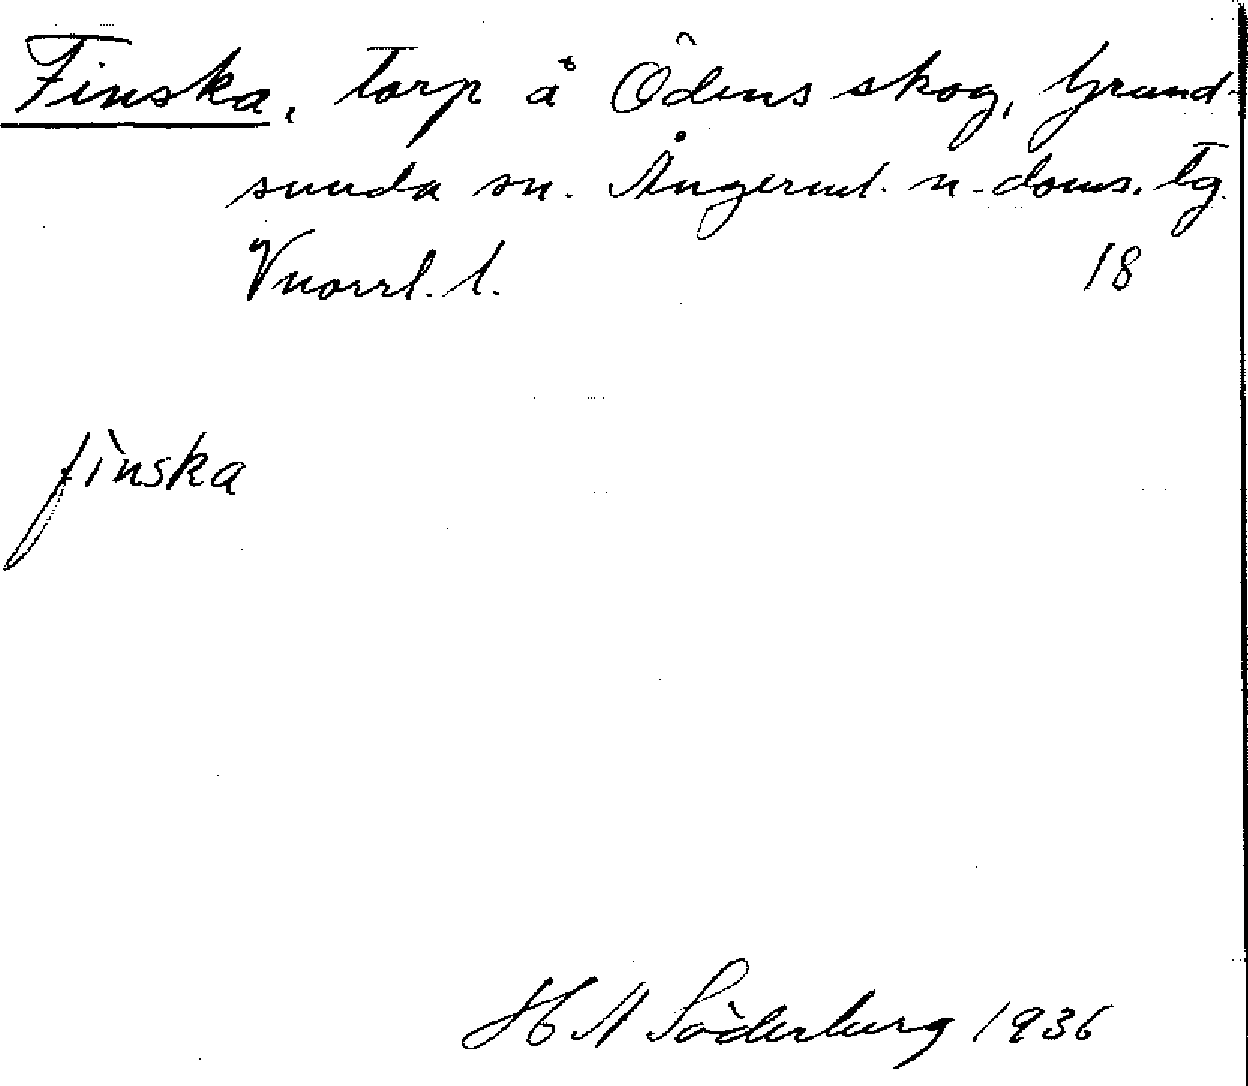 Finska, torp å Ödens skog, Grund-
sunda sn. Ångerml. n. doms. tg.
Vnorrl. l. 18
fìnska
H A Söderberg 1936